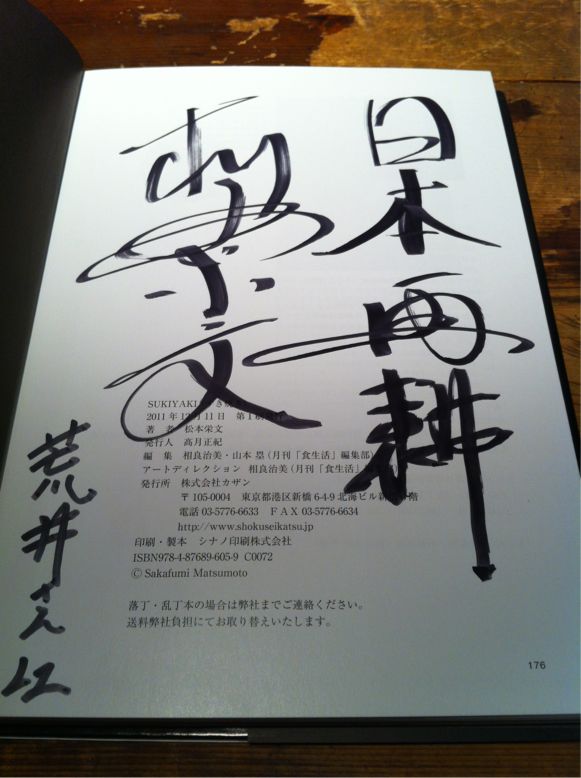 日本再耕
文
SUKIYAKI
2011 年 12 月 11 日　第 1 刷
著　者　松本栄文
発行人　高月正紀
編　集　相良治美・山本 塁（月刊「食生活」編集部）
アートディレクション　相良治美（月刊「食生活」編集部）
発行所　株式会社カザン
〒105-0004　東京都港区新橋 6-4-9 北海ビル新 階
電話 03-5776-6633　FAX 03-5776-6634
http://www.shokuseikatsu.jp
印刷・製本　シナノ印刷株式会社
ISBN978-4-87689-605-9　C0072
© Sakafumi Matsumoto
落丁・乱丁本の場合は弊社までご連絡ください。
送料弊社負担にてお取り替えいたします。
176
荒井さん江